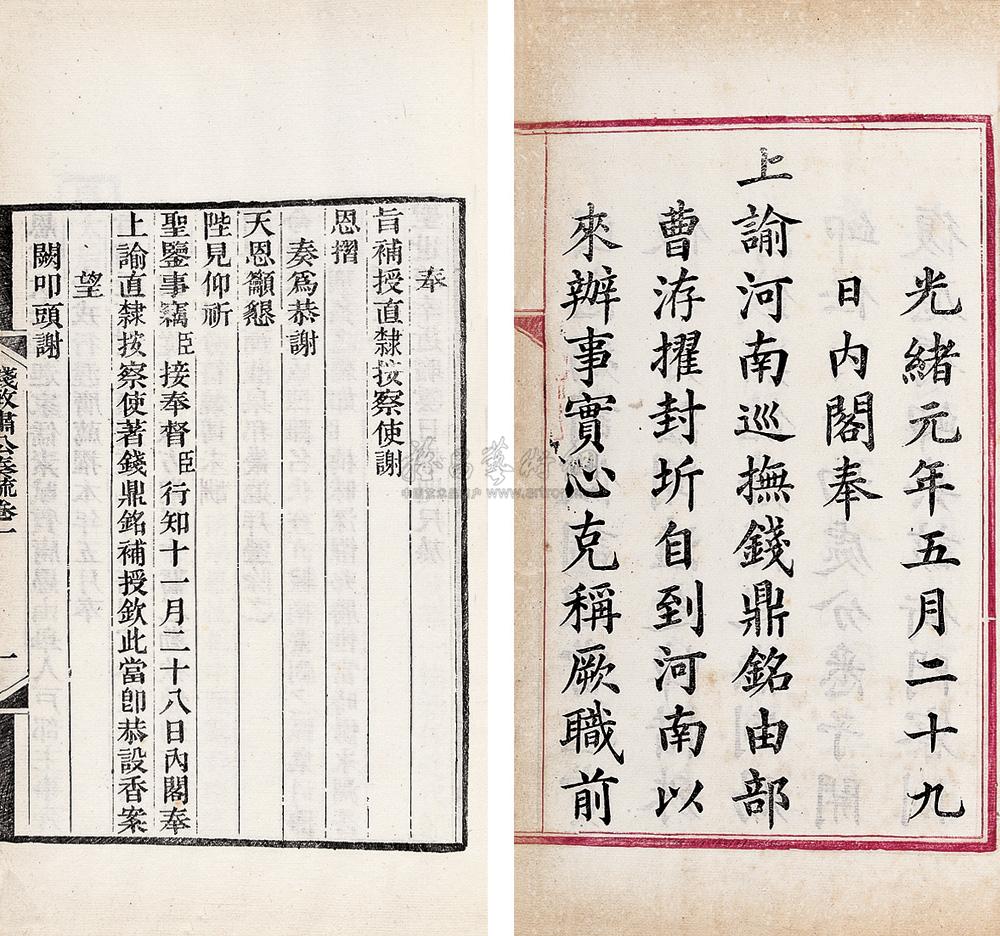 光緒元年五月二十九
日內閣奉
上諭河南巡撫錢鼎銘由部
曹洊擢封圻自到河南以
來辦事實心克稱厥職前
奉
旨補授直隸按察使謝
恩摺
奏爲恭謝
天恩籲懇
陛見仰祈
聖鑒事竊臣接奉督臣行知十一月二十八日內閣奉
上諭直隸按察使著錢鼎銘補授欽此當卽恭設香案
望
闕叩頭謝
錢敏肅公奏疏卷一
一